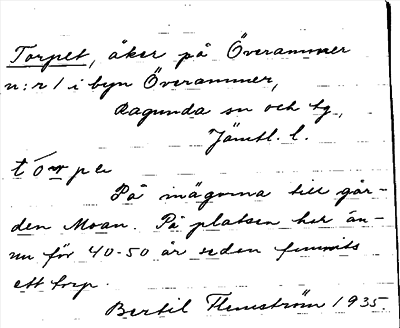 Torpet, åker på Överammer
n:r 1 i byn Överammer,
Ragunda sn och tg,
Jämtl. l.
tórpe
På mägorna till går-
den Moan. På platsen har än-
nu för 40-50 år sedan funnits
ett torp.
Bertil Flemström 1935